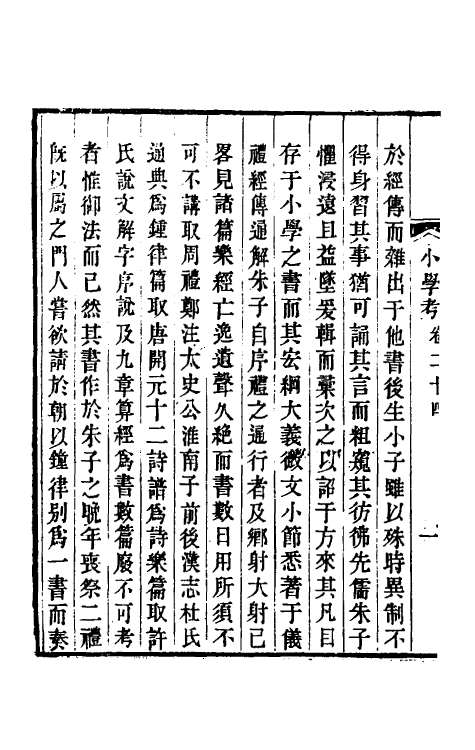 小學考卷二十四 一
於經傳而雜出于他書後生小子雖以殊時異制不
得身習其事猶可誦其言而粗窺其彷彿先儒朱子
懼浸遠且益墜爰輯而彙次之以詔于方來其凡目
存于小學之書而其宏綱大義微文小節悉著于儀
禮經傳通解朱子自序禮之通行者及鄉射大射已
畧見諸篇樂經亡逸遺聲久絶而書數日用所須不
可不講取周禮鄭注太史公淮南子前後漢志杜氏
通典為鍾律篇取唐開元十二詩譜為詩樂篇取許
氏說文解字序說及九章算經為書數篇廢不可考
者惟御法而已然其書作於朱子之晚年喪祭二禮
既以屬之門人嘗欲請於朝以鐘律別為一書而奏